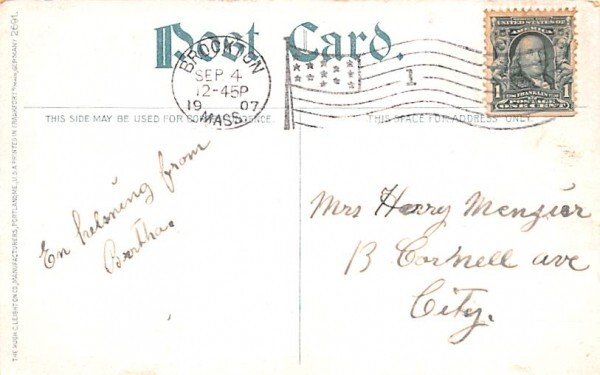 Post Card.
BROCKTON
SEP 4
12-45P
1907
MASS.
1
UNITED STATES OF AMERICA
1 1
FRANKLIN
POSTAGE
ONE CENT
THIS SIDE MAY BE USED FOR CORRESPONDENCE
THIS SPACE FOR ADDRESS ONLY.
En helsning from
Bertha.
Mrs Harry Mengier
13 Cornell ave
City.
THE HUGH C. LEIGHTON CO., MANUFACTURERS, PORTLAND, ME., U.S.A. PRINTED IN FRANKFORT GERMANY 2691.